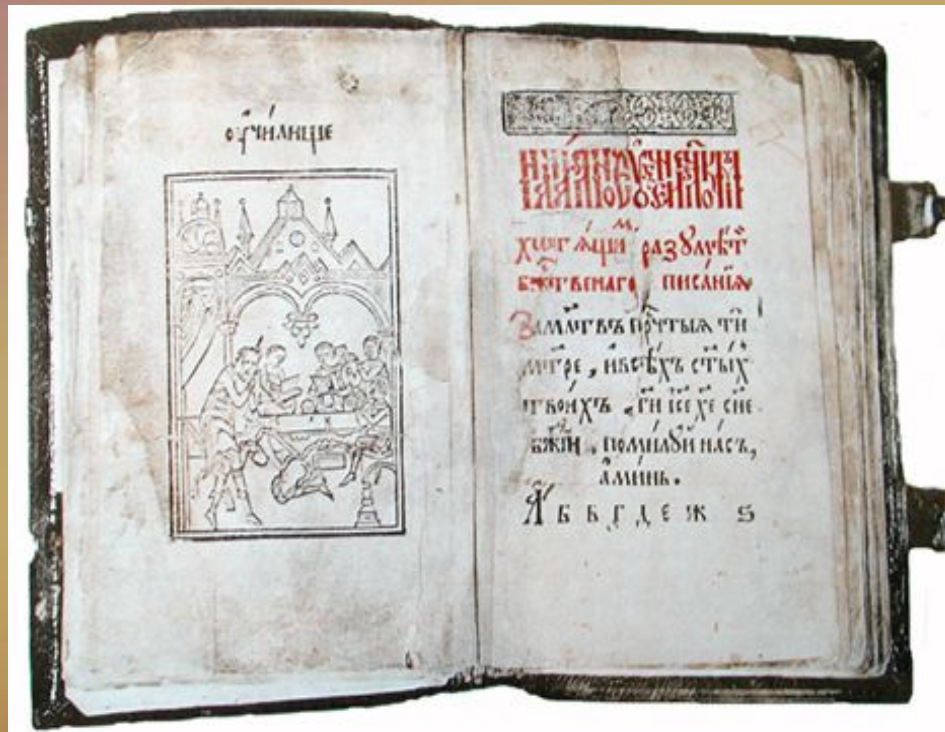 оучи́лище
хотѧ́щиⷨ разꙋмѣ́ти
бж҃твенаго писа́нїѧ
За мл҃твъ прⷱ҇тыѧ тѝ
мт҃ре, и҆ всѣ́хъ ст҃ы́хъ
твои́хъ гⷭ҇и і҆с҃е хе҃ сн҃е
бж҃їи, поми́лꙋй на́съ,
а҆ми́нь.
А҆ Б В Г Д Е Ж Ѕ